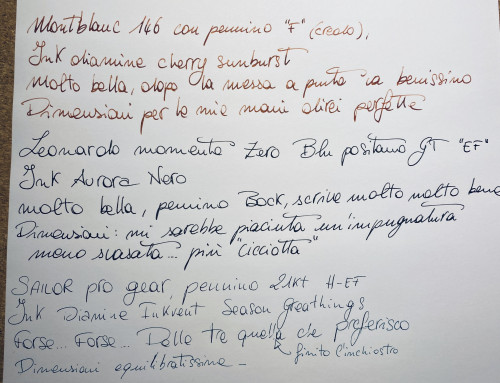 Montblanc 146 con pennino "F" (credo),
Ink diamine cherry sunburst
Molto bella, dopo la messa a punto va benissimo
Dimensioni per le mie mani direi perfette
Leonardo momento Zero Blu positano GT "EF"
Ink Aurora Nero
molto bella, pennino Bock, scrive molto molto bene
Dimensioni: mi sarebbe piaciuta un'impugnatura
meno scasata... più "cicciotta"
SAILOR pro gear, pennino 21kt H-EF
Ink Diamine Inkvent Season Greathings
Forse... Forse... Delle tre quella che preferisco
finito l'inchiostro
Dimensioni equilibratissime -